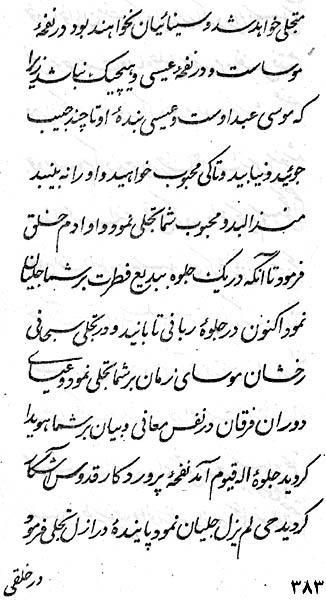 متجلی خواهد شد و سینائیان نخواهند بود در نفخهٔ
موساست و در نفخهٔ عیسی و هیچیک نباشد زیرا
که موسی عبد اوست و عیسی بندهٔ او تا چند حبیب
جوئید و نیابید و تا کی محبوب خواهید و او را نه بینید
منذ البد و محبوب شما تجلی نمود و او آدم خلق
فرمود تا آنکه در یک جلوه ببدیع فطرت بر شما جلیان
نمود اکنون در جلوهٔ ربانی تابانید و در تجلی سبحانی
رخشان موسای زمان بر شما تجلی نمود و عیسای
دوران فرقان در نفس معانی و بیان بر شما هویدا
گردید جلوهٔ اله قیوم آمد نفخهٔ پروردگار قدوس آشکار
گردید حی لم یزل جلیان نمود پایندهٔ در ازل تجلی فرمود
در خلقی
۳۸۳